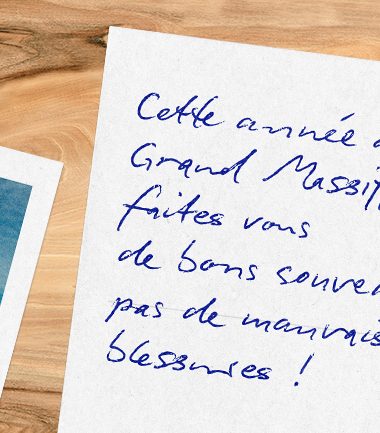 Cette année a
Grand Massif
faites vous
de bons souve
pas de mauvais
blessures !